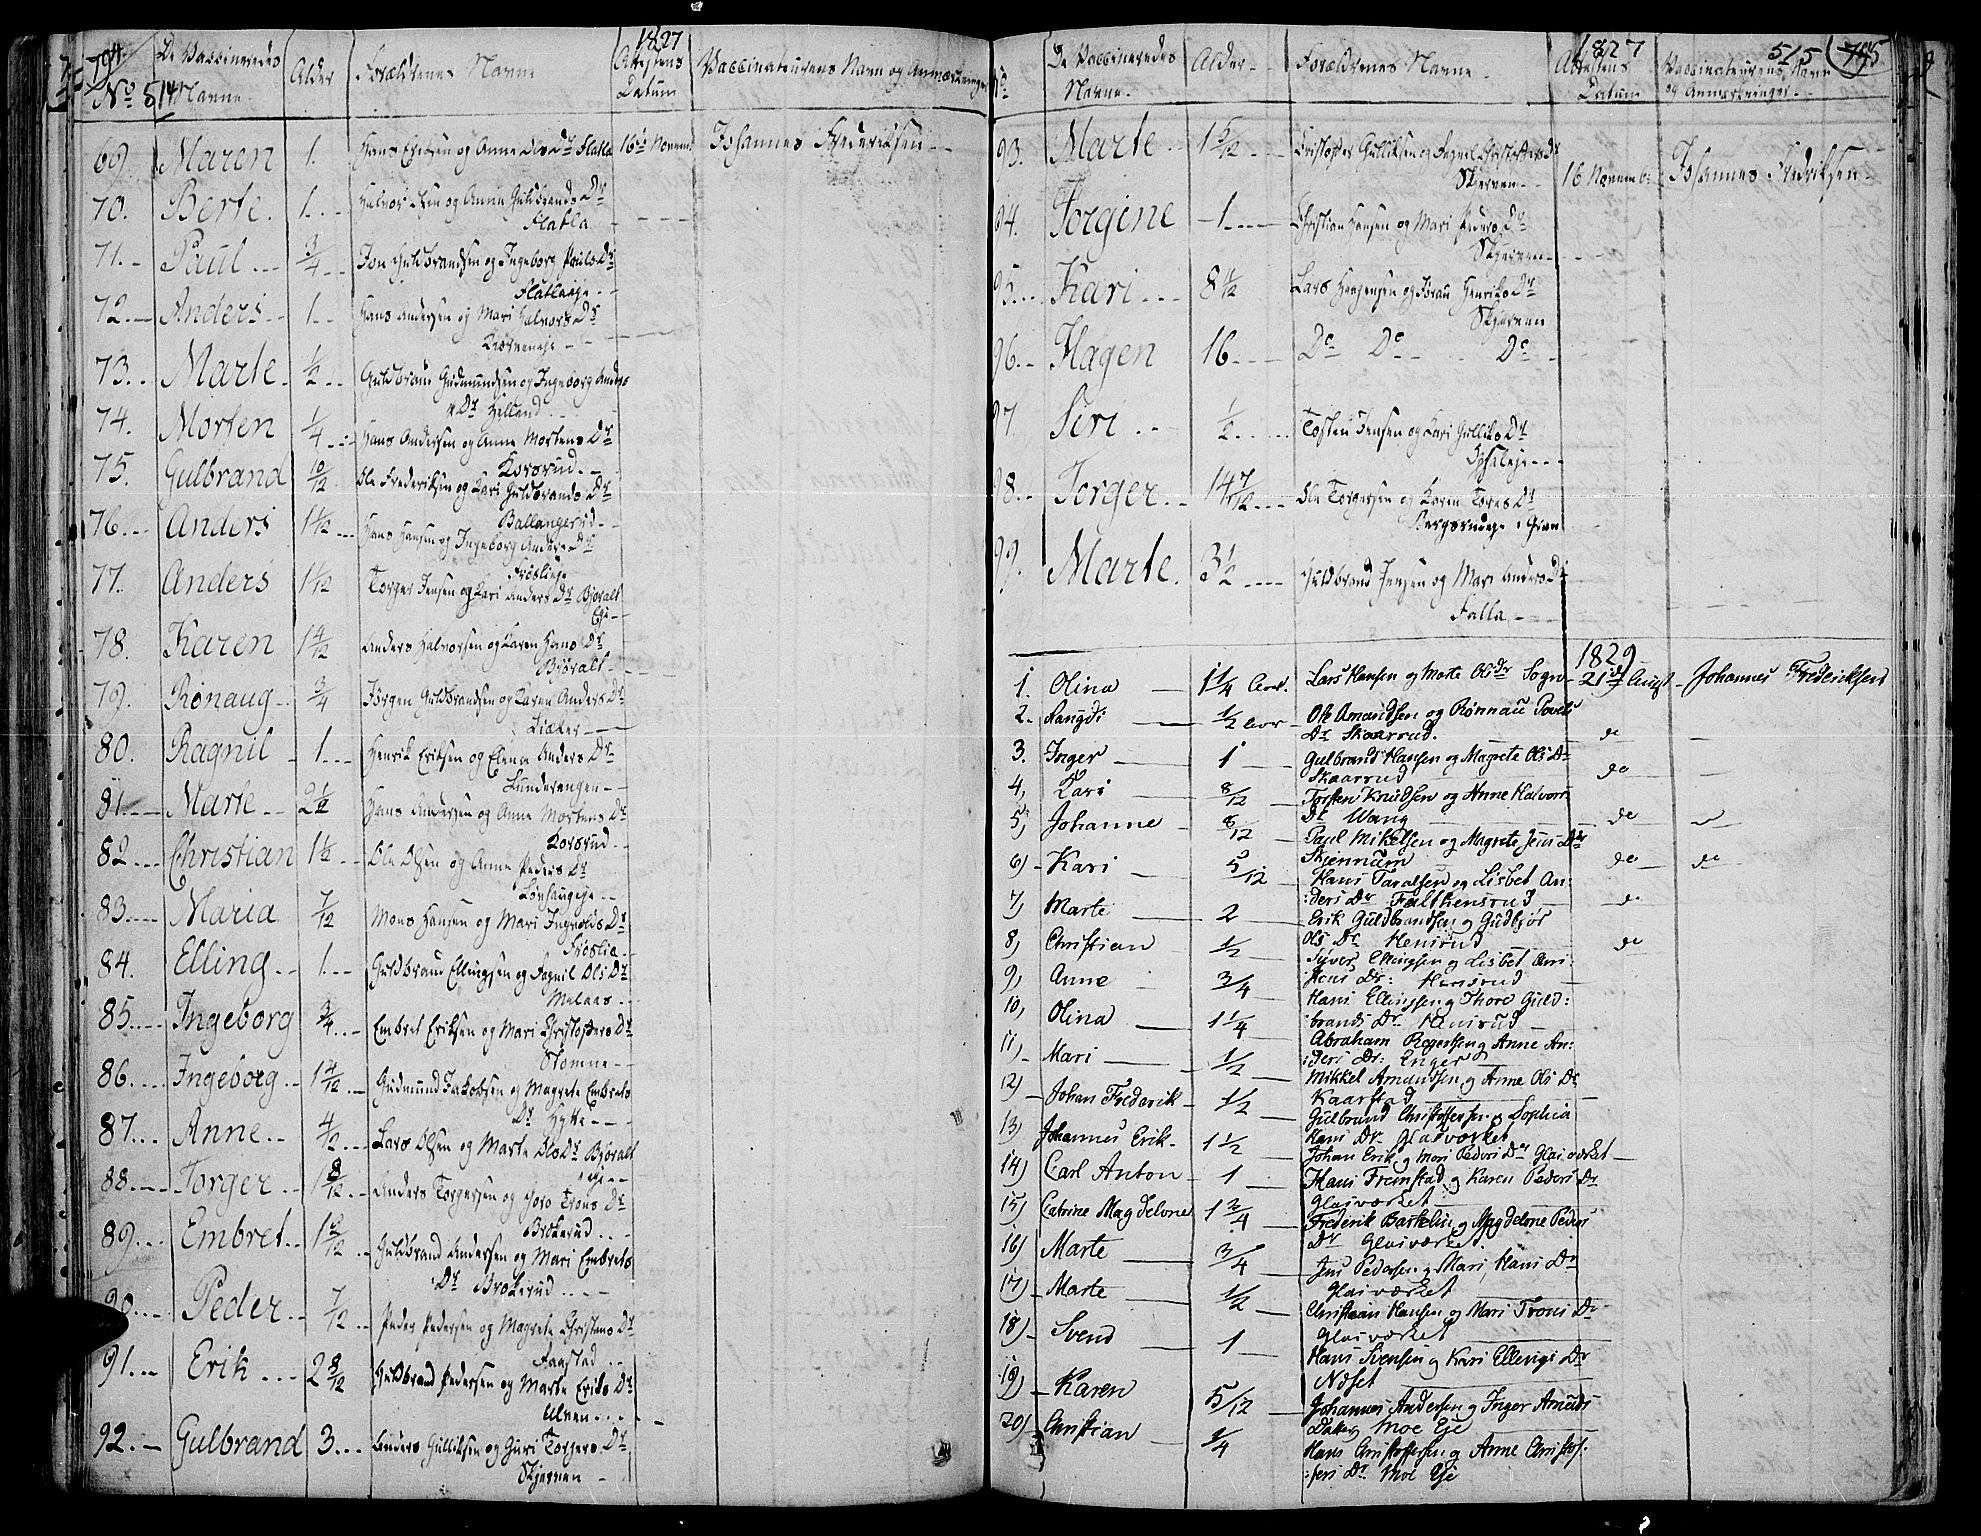 794
No 514
De Vaccineredes Navne
Alder
Forældrenes Navne
1827
Attestens Datum
Vaccinateurens Navn og Anmærkninger
69. Maren 1. Hans Ersen og Anne Ols Dr Flatla 16de Novemb Johannes Frederiksen
70. Berte 1 Halvor Isen og Anne Guldbrands Dr
Flatla
71. Paul 3/4 Jon Guldbrandsen og Ingeborg Pauls Dr
Flatlaeje
72. Anders 1 Hans Andersen og Mari Halvors Dr
73. Marte 1/2 Guldbrand Gudmundsen og Ingeborg Anders
Dr Helland
74. Morten 1/4 Hans Andersen og Anne Mortens Dr
Korsrud
75. Gulbrand 10/12 Ole Frederiksen og Kari Guldbrands Dr
Ballangerud
76. Anders 1 1/2 Hans Hansen og Ingeborg Anders Dr
Frøslieje
77. Anders 1 1/12 Torger Jensen og Kari Anders Dr Bjøralt
Eje
78. Karen 1 4/12 Anders Halvorsen og Karen Hans Dr
Bjøralt
79. Rønaug 3/4 Jørgen Guldbrandsen og Karen Anders Dr
Lieker
80. Ragnil 1 Henrik Eriksen og Elense Anders Dr
Lunderengen
81. Marte 2 1/2 Hans Andersen og Anne Mortens Dr
Korsrud
82. Christian 1 1/2 Ole Olsen og Anne Peders Dr
Lønhaugeje
83. Maria 7/12 Mons Hansen og Mari Ingvolds Dr
Frøslie
84. Elling 1 Guldbrand Ellingsen og Ragnil Ols Dr
Melaas
85. Ingeborg 3/4 Embret Eriksen og Mari Christophers Dr
Stomne
86. Ingeborg 1 4/12 Gudmund Jakobsen og Magrete Embrets
Dr Hytte
87. Anne 4/12 Lars Olsen og Marte Ols Dr Bjøralt
eje
88. Torger 1 8/12 Anders Torgersen og Goro Trons Dr
Brøkerud
89. Embret 1 8/12 Guldbrand Andersen og Mari Embrets
Dr Brøkerud
90. Peder 7/12 Peder Pedersen og Magrete Christens Dr
Faastad
91. Erik 2 8/12 Guldbrand Pedersen og Marte Eriks Dr
Ulven
92. Gulbrand 3 Anders Gulliksen og Guri Torgers Dr
Skjerven
515 795
No
De Vaccineredes Navne
Alder
Forældrenes Navne
1827
Attestens Datum
Vaccinateurens Navn og Anmærkninger
93. Marte 1 5/12 Cristoffer Gulliksen og Ragnil Christoffers Dr
Skjerven 16 Novemb: Johannes Fredriksen
94. Jorgine 1 Christian Hansen og Mari Peders Dr
Skjerven
95. Kari 8 1/2 Lars Haagensen og Joran Henriks Dr
Skjerven
96. Hagen 16 Do Do Do
97. Siri 1/2 Tosten Jensen og Kari Gulliks Dr
Opsaleje
98. Torger 14 7/12 Ole Torgersen og Karen Tores Dr
Bergsrudeje i Gran
99. Marte 3 1/2 Guldbrand Jensen og Mari Anders Dr
Falla
1829
1. Olina 1 1/4 Aar. Lars Hansen og Marte Ols Dr Sogn 21de Augst Johannes Frederiksen
2. Langdi 1/2 Aar Ole Amundsen og Rønnau Povels
Dr Skaarrud. do
3. Inger 1 Gulbrand Hansen og Magrete Ols Dr
Skaarrud do
4, Kari 8/12 Torsten Knudsen og Anne Halvors
Dr Wang do
5, Johanne 8/12 Paul Mikelsen og Magrete Jens Dr
Skjennum do do
6) Kari 5/12 Hans Taralsen og Lisbet An:
:ders Dr Falthensrud do
7) Marte 2 Erik Guldbrandsen og Gudbjør
Ols Dr Hensrud do
8) Christian 1/2 Syver Ellingsen og Lisbet Chri:
stens Dr: Hensrud
9) Anne 3/4 Hans Ellingsen og Thore Guld:
brands Dr Hensrud
10) Olina 1 1/4 Abraham Rogersen og Anne An:
:ders Dr: Enger
11) Mari 1/2 Mikkel Amundsen og Anne Ols Dr
Kaarstad
12) Johan Frederik 1/2 Gulbrand Christoffersen og Sophia
Hans Dr Glasværket
13) Johannes Erik 1 1/2 Johan Erik og Mari Peders Dr Glasværket
14) Carl Anton 1 Hans Fremstad og Karen Peders Dr
Glasværket
15) Catrine Magdelone 1 3/4 Frederik Barkelin og Magdelone Peders
Dr Glasværket.
16) Marte 3/4 Jens Pedersen og Mari Hans Dr
Glasværket
17) Marte 1/2 Christian Hansen og Mari Trons Dr
Glasværket
18) Svend 1 Hans Svensen og Kari Ellengs Dr
Næset
19) Karen 5/12 Johannes Andersen og Inger Amunds
Datter Moe Eje
20) Christian 1/4 Hans Christoffersen og Anne Christof:
:fers Dr Moe Eje